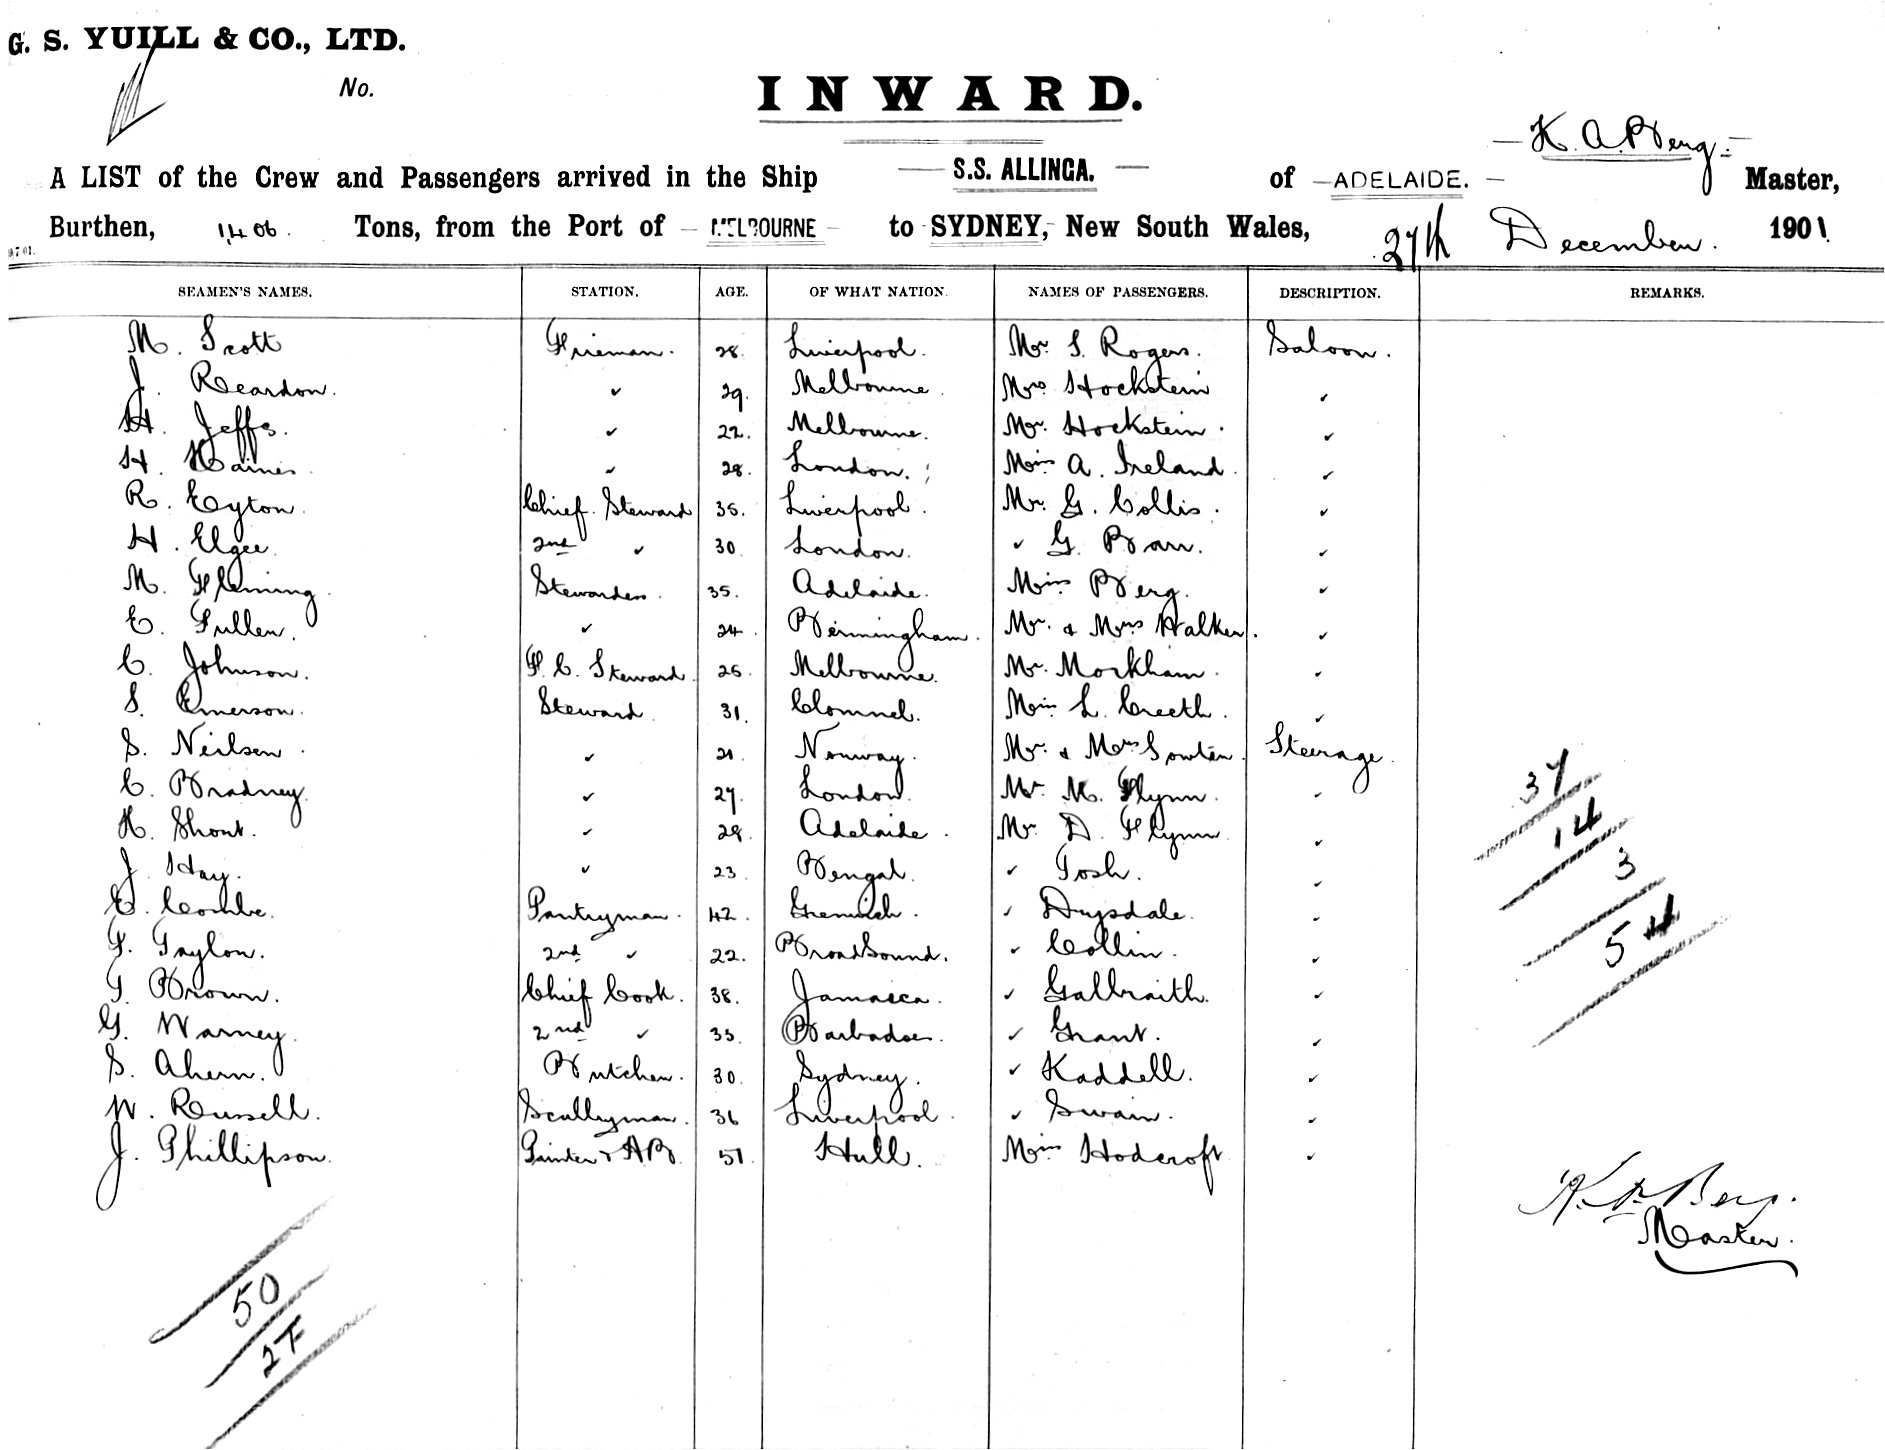 G. S. YUILL & CO., LTD.
No.
INWARD.
K. A. Berg
A LIST of the Crew and Passengers arrived in the Ship S.S. ALLINGA. of ADELAIDE. Master,
Burthen, 1,406 Tons, from the Port of MELBOURNE to SYDNEY, New South Wales, 27th December. 1901.
SEAMEN'S NAMES. STATION. AGE. OF WHAT NATION. NAMES OF PASSENGERS. DESCRIPTION. REMARKS.
M. Scott Fireman. 28. Liverpool. Mr. S. Rogers. Saloon.
J. Reardon. ✓ 29. Melbourne. Mrs Hockstein ✓
H. Jeffs. ✓ 22. Melbourne. Mr. Hockstein. ✓
H. Haines. ✓ 28. London. Miss A. Ireland. ✓
R. Eyton. Chief Steward 35. Liverpool. Mr. G. Collis. ✓
H. Elgee. 2nd ✓ 30. London. ✓ G. Barr. ✓
M. Fleming. Stewardess. 35. Adelaide. Miss Berg. ✓
E. Pullen. ✓ 24 Birmingham. Mr. & Mrs Walker. ✓
C. Johnson. F. C. Steward. 25. Melbourne. Mr. Morkham. ✓
S. Emerson. Steward. 31. Clonmel. Miss L. Creeth. ✓
S. Neilsen. ✓ 21. Norway. Mr. & Mrs Sowten. Steerage.
C. Bradney. ✓ 27. London. Mr. M. Flynn. ✓
H. Short. ✓ 28. Adelaide. Mr. D. Flynn. ✓
J. Hay. ✓ 23. Bengal. ✓ Tosh. ✓
E. Combe. Pantryman. 42. Greenwich. ✓ Drysdale. ✓
F. Taylor. 2nd ✓ 22. BroadSound. ✓ Collin. ✓
T. Brown. Chief Cook. 38. Jamaica. ✓ Galbraith. ✓
G. Warney. 2nd ✓ 33. Barbadoes. ✓ Grant. ✓
S. Ahern. Butcher. 30. Sydney. ✓ Kaddell. ✓
W. Russell. Scullyman. 36 Liverpool. ✓ Swain. ✓
J. Phillipson. Painter & AB. 51. Hull. Miss Hodcroft ✓
37
14
3
54
K. A. Berg.
Master.
50
27